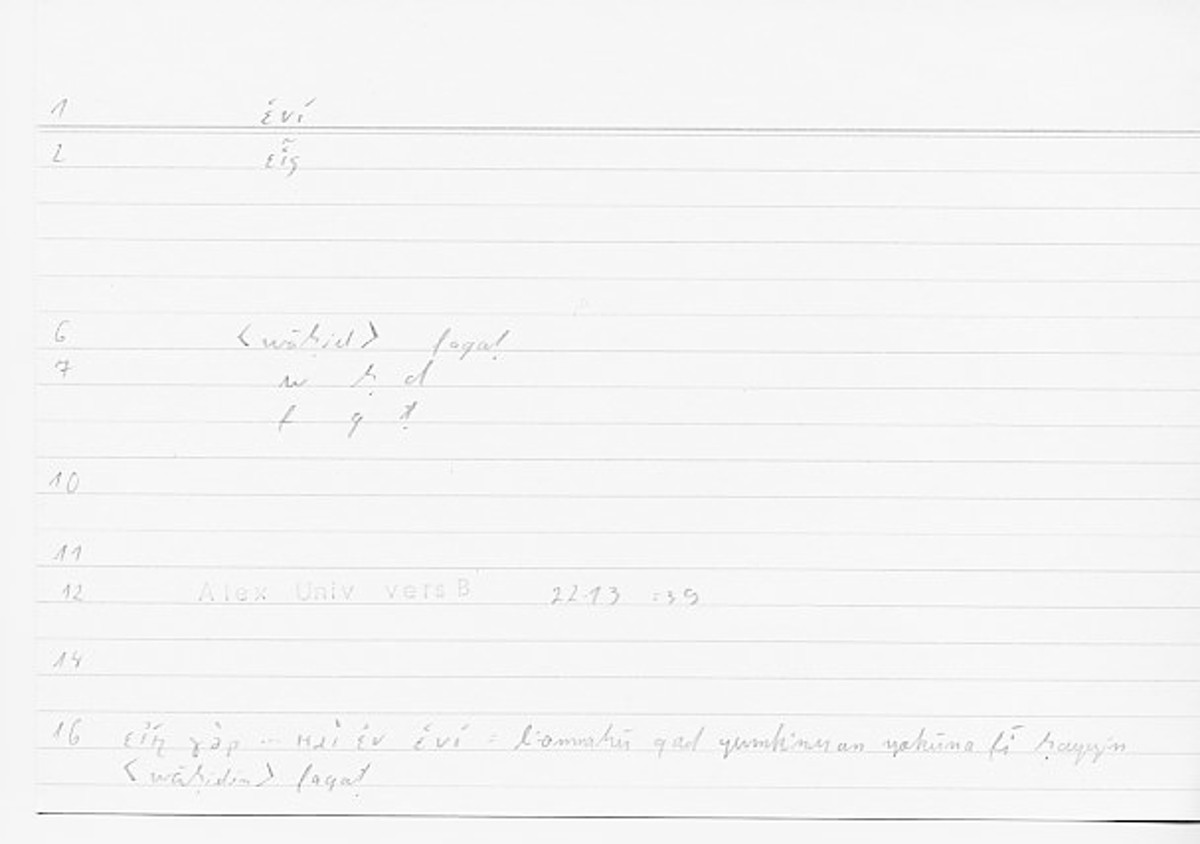 1 ἑνί
2 εἷς
6 <wāḥid> faqaṭ
7 w ḥ d
f q ṭ
10
11
12 Alex Univ vers B 22.13 :39
14
16 εἴη γὰρ — καὶ ἐν ἑνί = li-annahū qad yumkinu an yakūna fī ḥayyin
<wāḥidin> faqaṭ